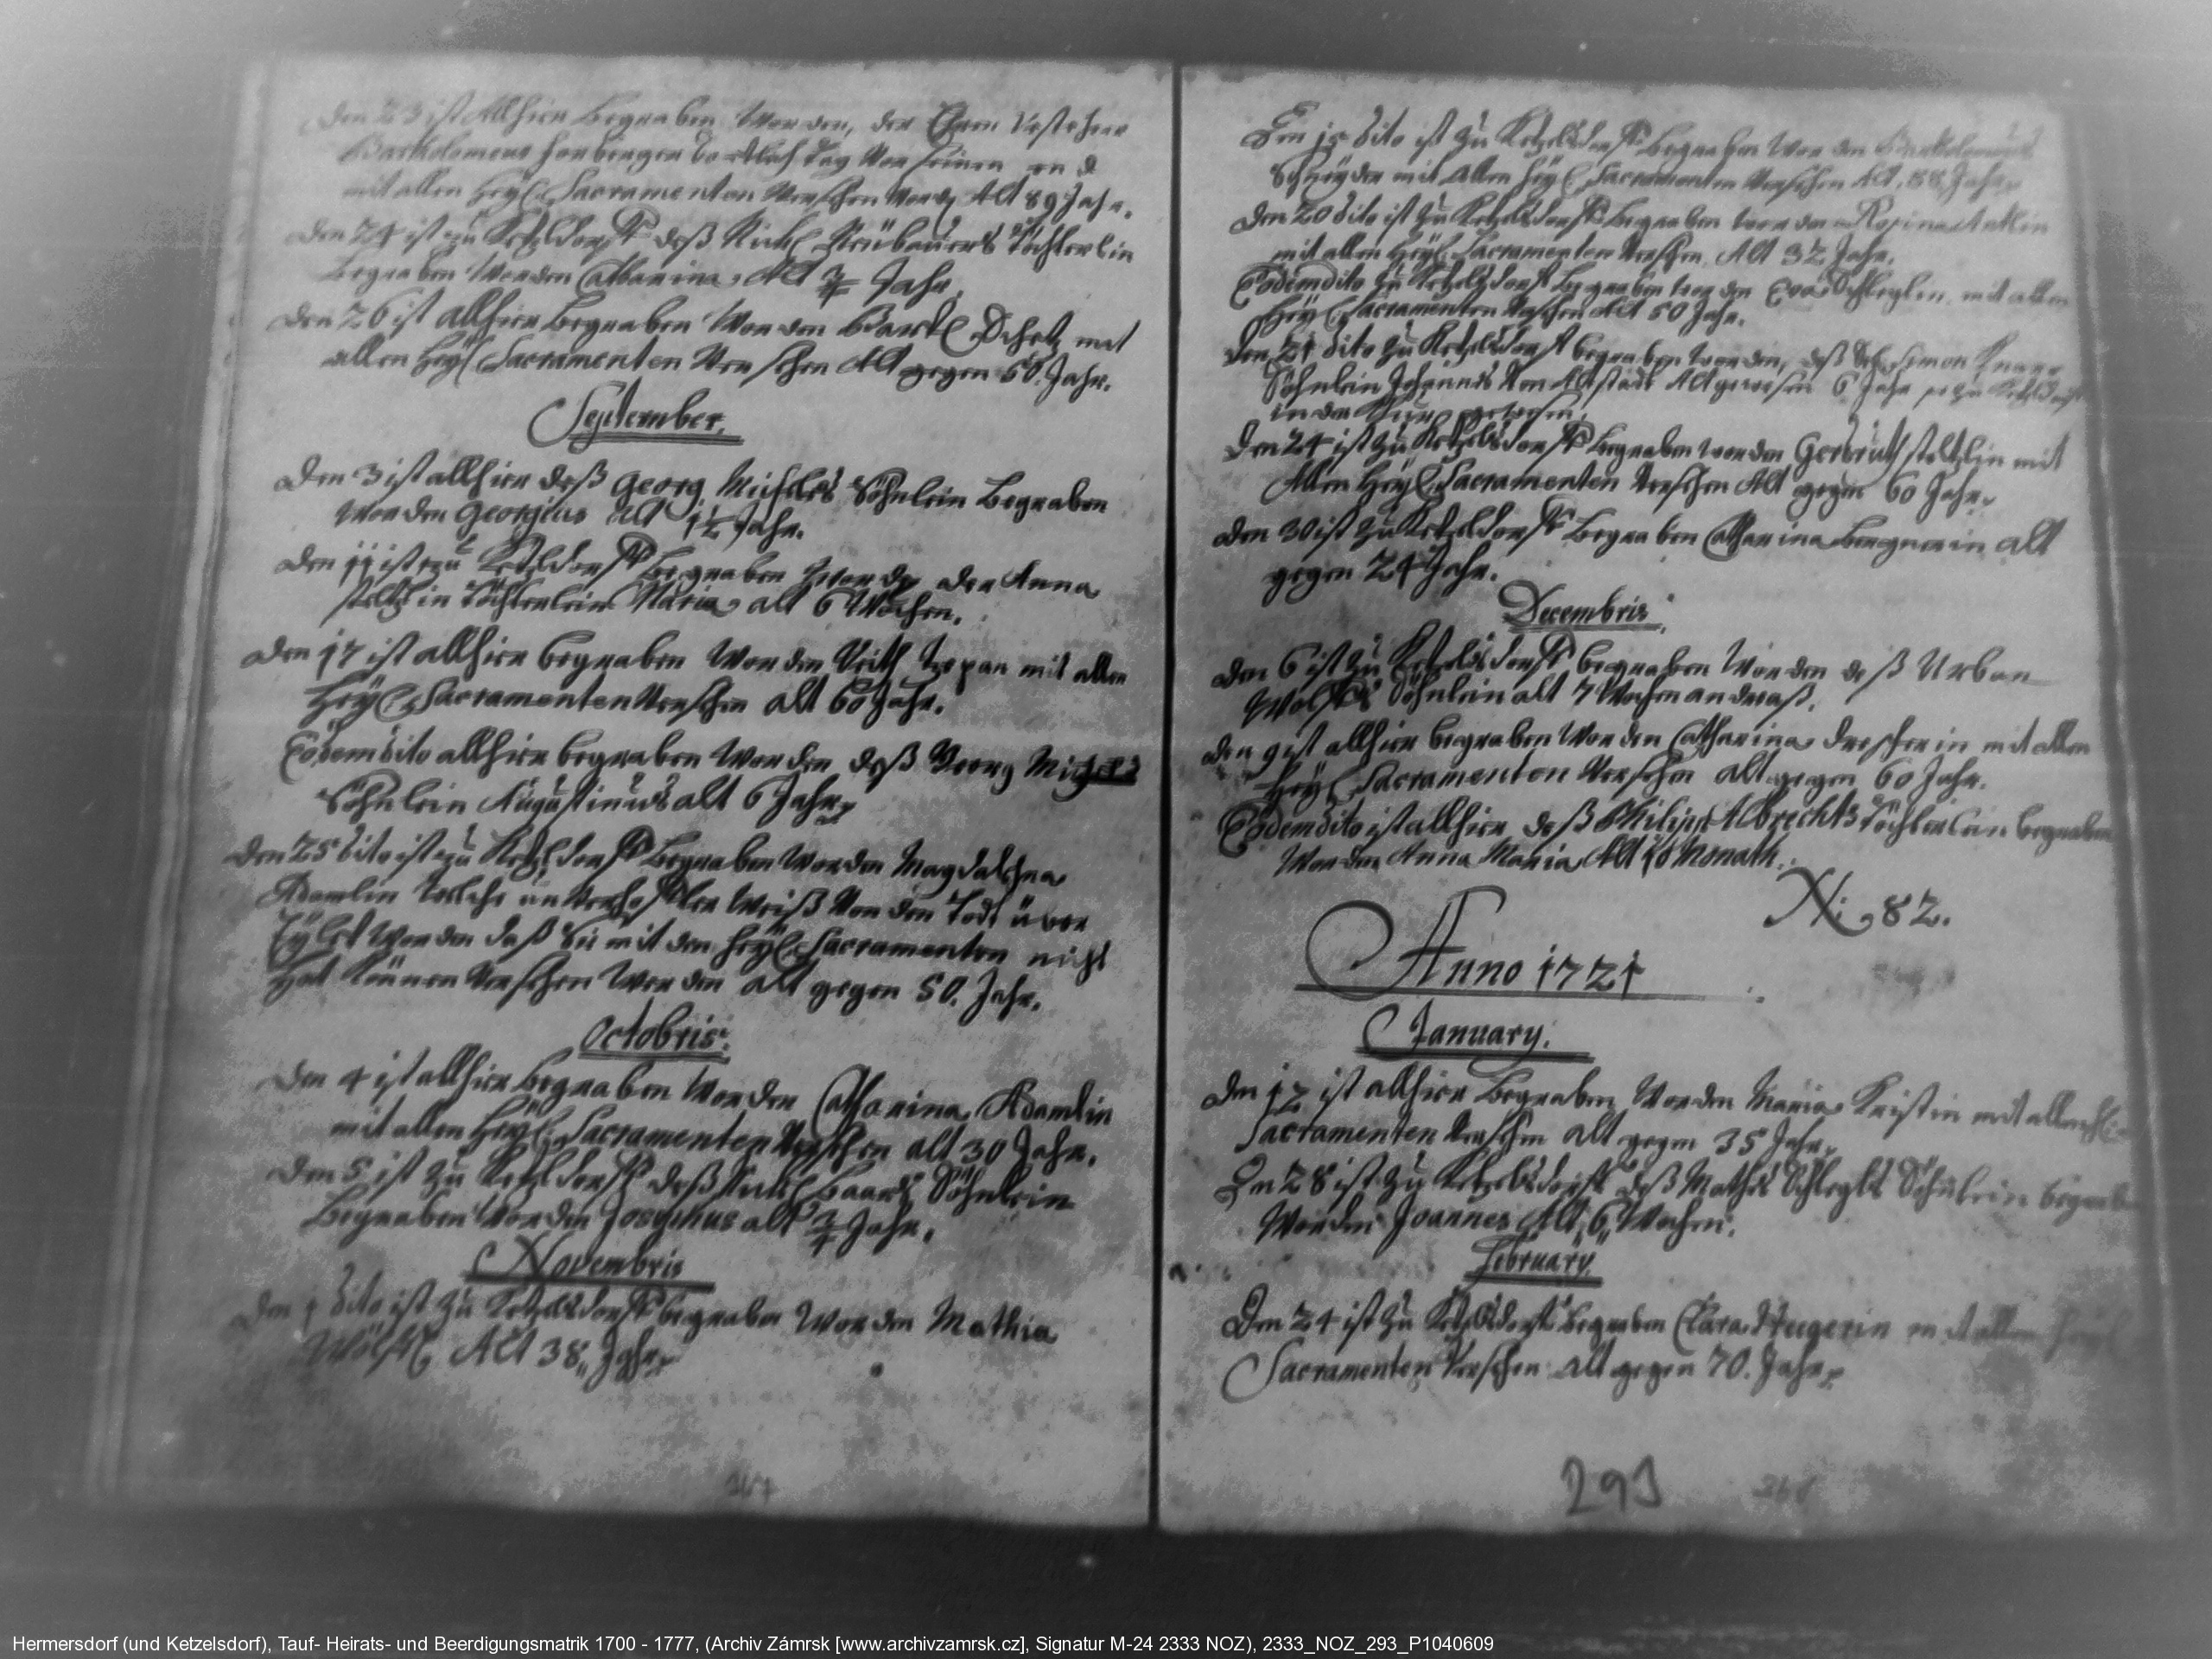 Den 23 ist Allhier Begraben Worden, der
Bartholomeus
mit allen Heyl. Sacramenten Versehen Alt 89 Jahr.
Den 24 ist zu Ketzldorff deß Nickl Neübauers Töchterlein
Begraben Worden Catharina, Alt 3/4 Jahr.
Den 26 ist Allhier Begraben Worden Bartl Scholtz mit
allen Heyl. Sacramenten Versehen Alt gegen 60. Jahr.
September.
Den 3 ist allhier deß Georg Michels Söhnlein Begraben
Worden Georgius Alt 1 1/2 Jahr.
Den 11 ist zu Ketzldorff Begraben der Anna
Töchterlein Maria alt 6 Wochen.
Den 17 ist allhier begraben Worden Veith mit allen
Heyl. Sacramenten Versehen Alt 60 Jahr.
Eodem dito allhier begraben Worden deß Georg Michels
Söhnlein Augustinus alt 6 Jahr.
Den 25 dito ist zu Ketzldorff Begraben Worden Magdalena
Adamlin Welche unverhoffter Weiß Von den Todt über
Eylet Worden daß Sie mit den Heyl. Sacramenten nicht
Hat Können Versehen Werden Alt gegen 50. Jahr.
Octobris.
Den 4 ist allhier Begraben Worden Catharina Adamlin
mit allen Heyl. Sacramenten Versehen alt 30 Jahr.
Den 5 ist zu Ketzldorff deß Söhnlein
Begraben Worden Josephus alt 3/4 Jahr.
Novembris
Den 1 dito ist zu Ketzelsdorff begraben Worden Mathia
Wölffl Alt 38 Jahr
Den 15 dito ist zu Ketzelsdorff Begraben Worden
Schneyder mit Allen Heyl. Sacramenten Versehen Alt, 88 Jahr
Den 20 dito ist zu Ketzelsdorff Begraben Worden Rosina
mit allen Heyl. Sacramenten Versehen Alt 32 Jahr.
Eodem dito zu Ketzelsdorff Begraben Worden Eva Schleglin, mit allen
Heyl. Sacramenten Versehen Alt 50 Jahr.
Den 21 dito zu Ketzelsdorff begraben worden, deß Simon
Söhnlein Johannes Von Altstadt Alt gewesen 6 Jahr
in der gewesen.
Den 24 ist zu Ketzelsdorff Begraben worden Gerdruth mit
Allen Heyl. Sacramenten Versehen Alt gegen 60 Jahr
Den 30 ist zu Ketzelsdorff Begraben Catharina Bergnerin alt
gegen 24 Jahr.
Decembris.
Den 6 ist zu Ketzelsdorff begraben Worden deß Urban
Wolffs Söhnlein alt 7 Wochen andreaß.
Den 9 ist allhier begraben Worden Catharina mit allen
Heyl. Sacramenten Versehen alt gegen 60 Jahr.
Eodem dito ist allhier deß Philipp Albrechts Töchterlein begraben
Worden Anna Maria Alt 18 Monath.
N: 82.
Anno 1721
January.
Den 12 ist allhier Begraben Worden Maria Kristin mit allen
Sacramenten Versehen alt gegen 35 Jahr
Den 28 ist zu Ketzelsdorff deß Mathes Schlegls Söhnlein begraben
Worden Joannes Alt 6 Wochen.
February.
Den 24 ist zu Ketzelsdorff begraben Clara mit allen Heyl
Sacramenten Versehen alt gegen 70. Jahr
293
Hermersdorf (und Ketzelsdorf), Tauf- Heirats- und Beerdigungsmatrik 1700 - 1777, (Archiv Zámrsk [www.archivzamrsk.cz], Signatur M-24 2333 NOZ), 2333_NOZ_293_P1040609